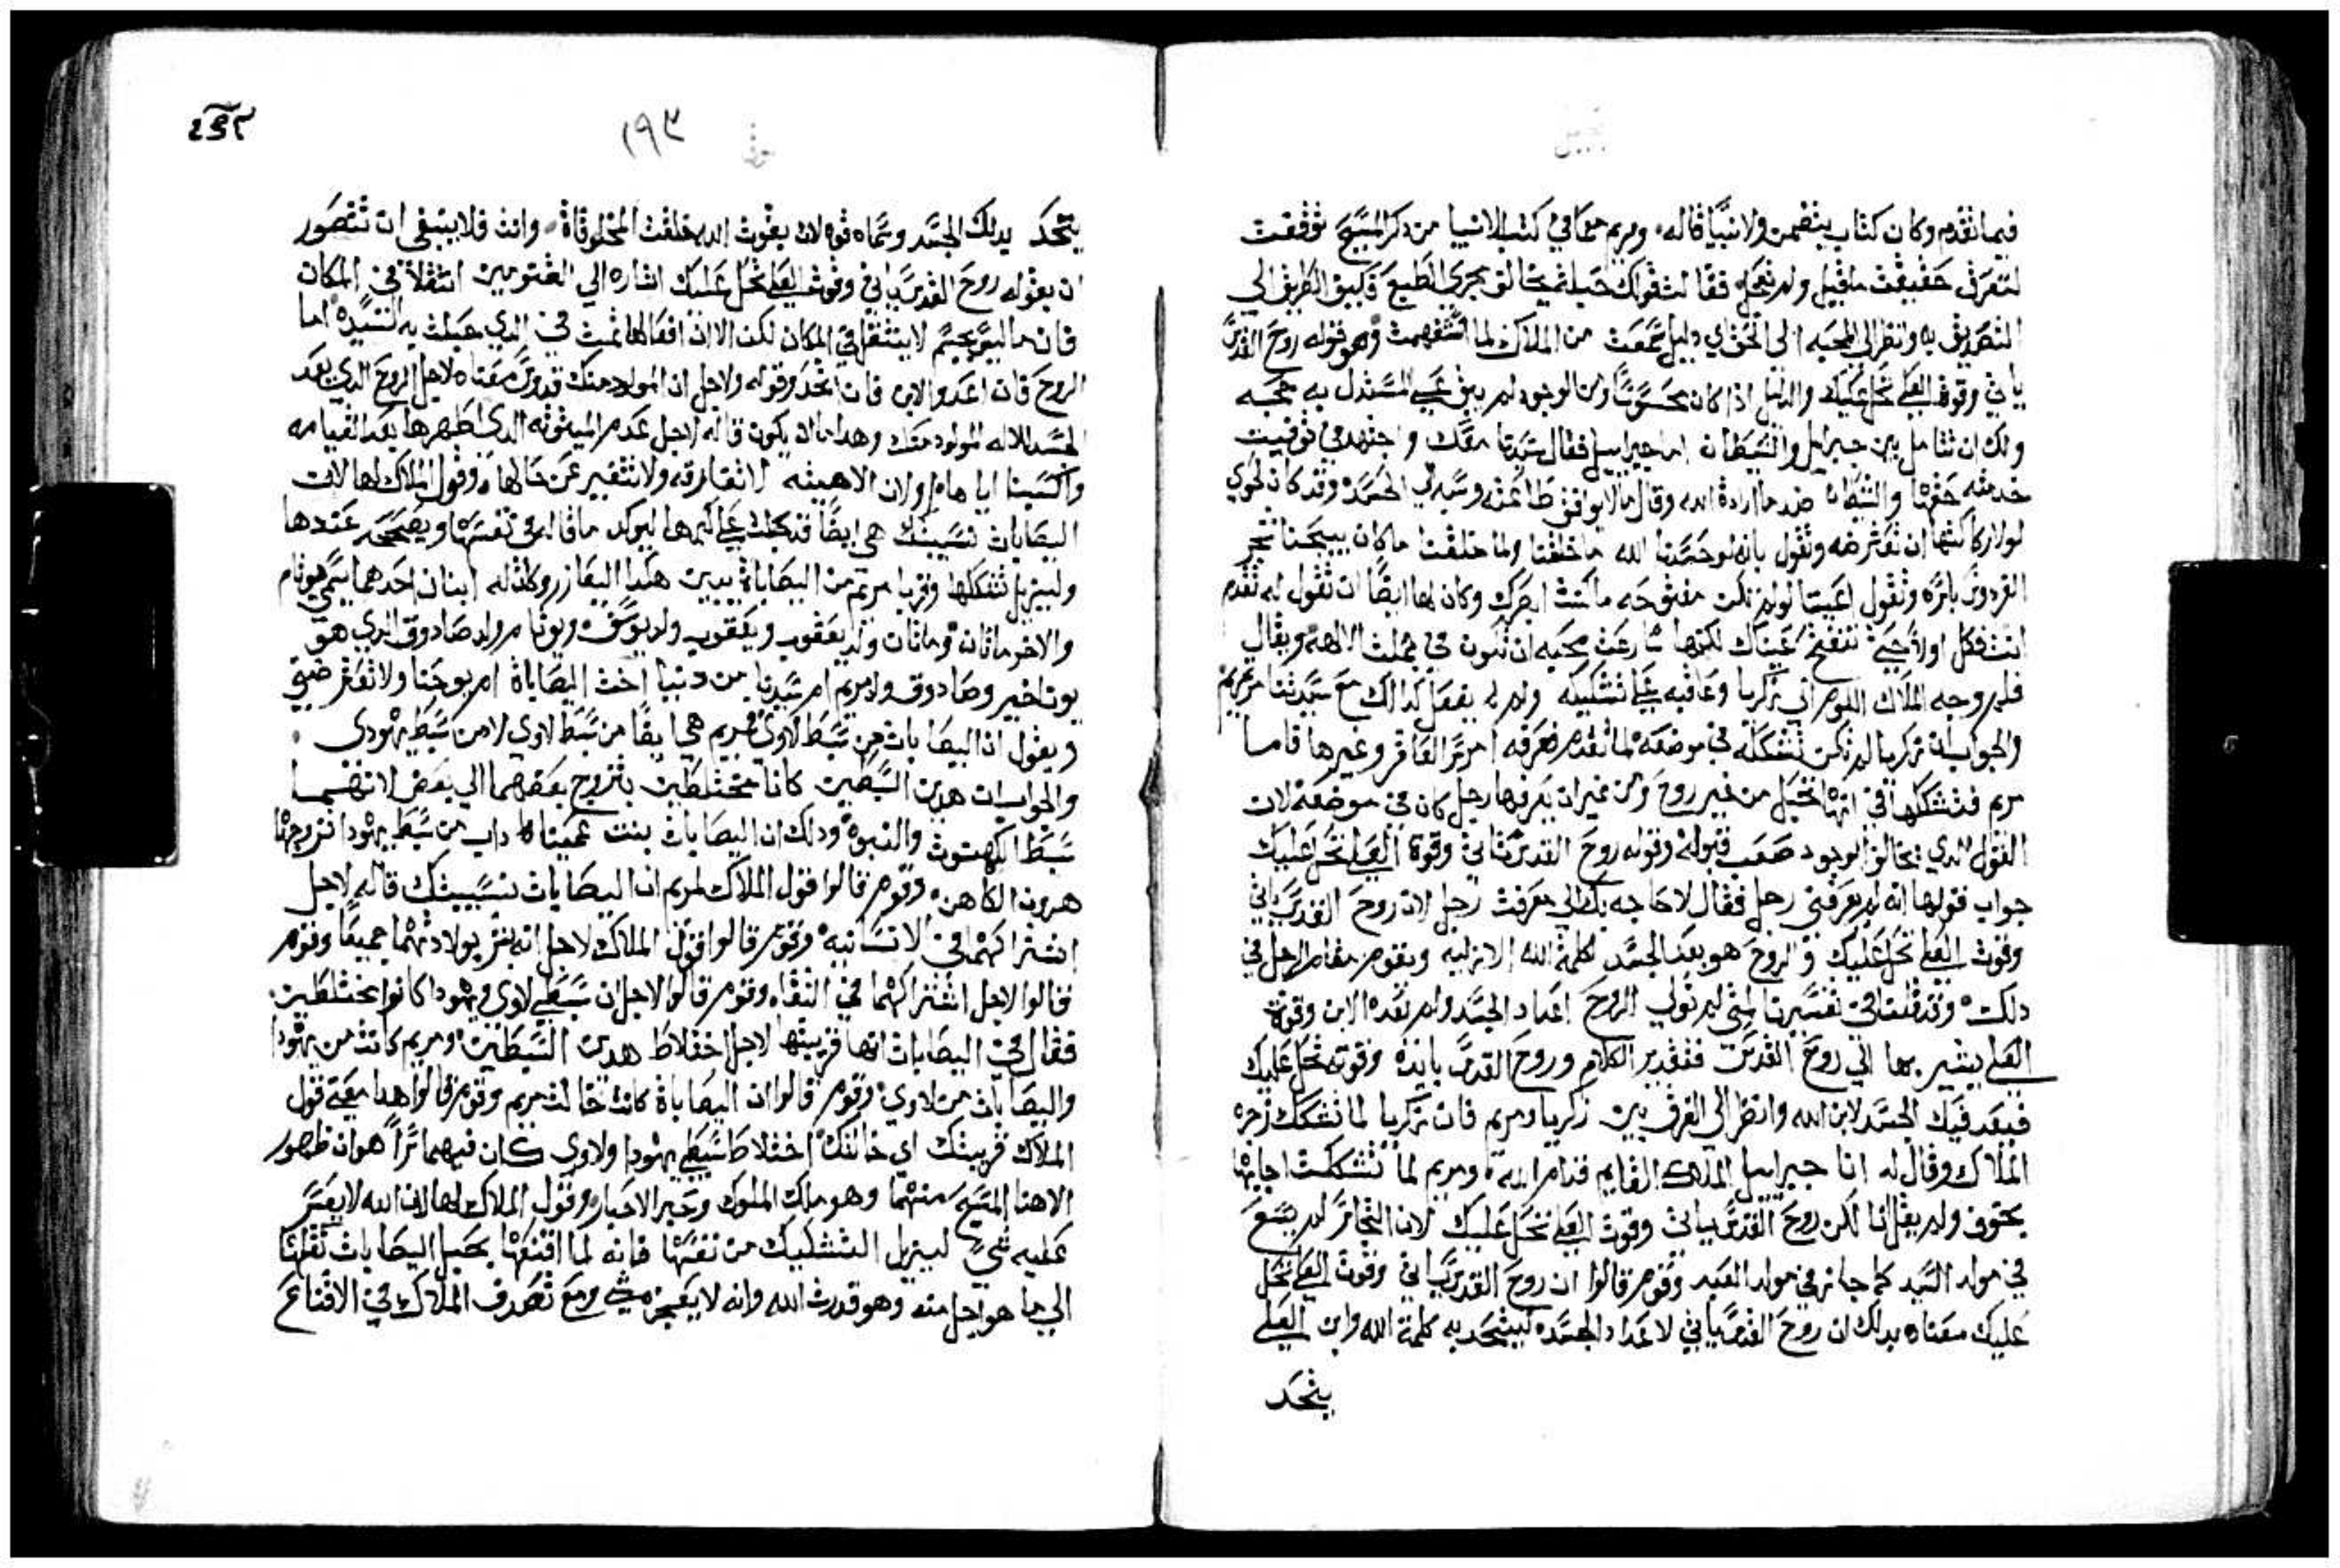 فيما تقدم وكان كتاب يتضمن ولا نبيا قاله، ومريم مما في كتب الانبيا من ذكر المسيح توقفت
لتعرف حقيقت ماقيل ولم تعجل فقالت قولك حبله تم يخالف مجرى الطبع فكيف الطريق الي
التصديق به وانظر الي المحبه الي الحق اي دليل سمعت من الملاك لما استفهمت وهو قوله روح القدس
ياتي وقوة العلي تحل عليك والدليل اذا كان محسوسًا ومن الوجود لم يبق علي المستدل به حجه
ولك ان تتامل بين جبراييل والشيطان اما جبراييل فقال سيدنا معك واجتهد في توفيت
خدمته حقها والشيطان ضد ما اراده الله وقال ما لا يوافق طاعته وسيدني الجسد وقد كان لحوي
لولا ركاكتها ان تعترضه وتقول بانه لو حسدنا الله ما خلقنا ولما خلقنا ما كان يبيحنا شجر
الفردوس باسره وتقول اعيننا لو لم تكن مفتوحه ما كنت ابصرك وكان لها ايضًا ان تقول له تقدم
انت فكل اولًا حتي تنفتح عيناك لكنها سارعت محبه ان تكون في جملت الالهه ويقال
فلم وجه الملاك اللوم الي زكريا وعاقبه علي تشككه ولم لم يفعل كذالك مع سيدتنا مرتمريم
والجواب ان زكريا لم تكن تشككه في موضعه لما تقدم معرفه امر سر العاقر وغيرها فاما
مريم فتشككها في انها تحبل من غير زوج ومن غير ان يعرفها رجل كان في موضعه لان
القول الذي يخالف الوجود صعب قبوله وقوله روح القدس تاتي وقوة العلي تحل عليك
جواب قولها انه لم يعرفني رجل فقال لا حاجه بك الي معرفت رجل لان روح القدس ياتي
وقوت العلي تحل عليك والروح هو يعد الجسد لكلمة الله الازليه ويقوم مقام الرجل في
دلك، وقد قلنا في تفسير متي لم تولي الروح اعداد الجسد ولم تعده الابن وقوة
العلي يشير بها الي روح القدس فتقدير الكلام وروح القدس يايده وقوته تحل عليك
فيعد فيك الجسد لابن الله وانظر الي الفرق بين زكريا ومريم فان زكريا لما تشكك زجره
الملاك وقال له انا جبراييل الملاك القايم قدام الله، ومريم لما تشككت اجابها
بخوف ولم يقل انا لكن روح القدس ياتي وقوت العلي تحل عليك لان التجاسر لم يسع
في مولد السيد كما جاز في مولد العبد وقوم قالوا ان روح القدس ياتي وقوت العلي تحل
عليك معناه بدلك ان روح القدس ياتي لاعداد الجسد ليتحد به كلمة الله وابن العلي
يتحد
١٩٣
يتحد بدلك الجسد وسماه قوه لان بقوت الله خلقت المخلوقاة، وانت فلا ينبغي ان تتصور
ان بقوله روح القدس ياتي وقوة العلي تحل عليك اشاره الي القنومين انتقلا في المكان
فان ما ليس بجسم لا ينتقل في المكان لكن الا ان افعالها تمت في الذي حبلت به السيده اما
الروح فان اعد والابن فان اتحد وقوله ولاجل ان المولود منك قدوس معناه لاجل الروح الدي يعد
الجسد للاله المولود منك وهدا اما ان يكون قاله لاجل عدم الميتوته الدي اظهرها بعد القيامه
واكسبنا اياها، او لان الاهيته لا تفارقه ولا تتغير عن حالها، وقول الملاك لها لان
اليصابات نسيبتك هي ايضًا قد حبلت علي كبرها ليوكد ما قاله في نفسها ويصححه عندها
وليزيل تشككها وقربا مريم من اليصاباة يبين هكذا اليعازر وكان له ابنان احدهما يسمي يوتام
والاخر ماتان وماتان ولد يعقوب ويعقوب ولد يوسف ويوتام ولد صادوق الدي هو
يوناخير وصادوق ولد مريم ام سيدنا من دينا اخت اليصاباة ام يوحنا ولا تعترضني
وتقول ان اليصابات من سبط لاوي فمريم هي ايضًا من سبط لاوي لا من سبط يهودى.
والجواب ان هدين السبطين كانا مختلطين بتزوج بعضهما الي بعض لانهما
سبطا الكهنوت والنبوه ودلك ان اليصابات بنت عميناداب من سبط يهودا تزوجها
هرون الكاهن، وقوم قالوا قول الملاك لمريم ان اليصابات نسيبتك قاله لاجل
اشتراكهما في الانسانيه، وقوم قالوا قول الملاك لاجل انه بشر بولادتهما جميعًا وقوم
قالوا لاجل اشتراكهما في النقاه وقوم قالوا لاجل ان سبطي لاوي ويهودا كانوا مختلطين.
فقال في اليصابات انها قريبتها لاجل اختلاط هدين السبطين، ومريم كانت من يهودا
واليصابات من لاوي، وقوم قالوا ان اليصاباة كانت خالت مريم وقوم قالوا هدا معني قول
الملاك قريبتك اي خالتك، اختلاط سبطي يهودا ولاوي كان فيهما سراً هو ان ظهور
الاهنا المسيح منهما وهو ملك الملوك وحبر الاحبار، وقول الملاك لها لان الله لا يعسر
عليه شيٌ ليزيل التشكيك من نفسها فانه لما اقنعها بحبل اليصابات نقلها
الي ما هو اجل منه وهو قدرت الله وانه لا يعجزه شي ومع تصرف الملاك في الاقناع